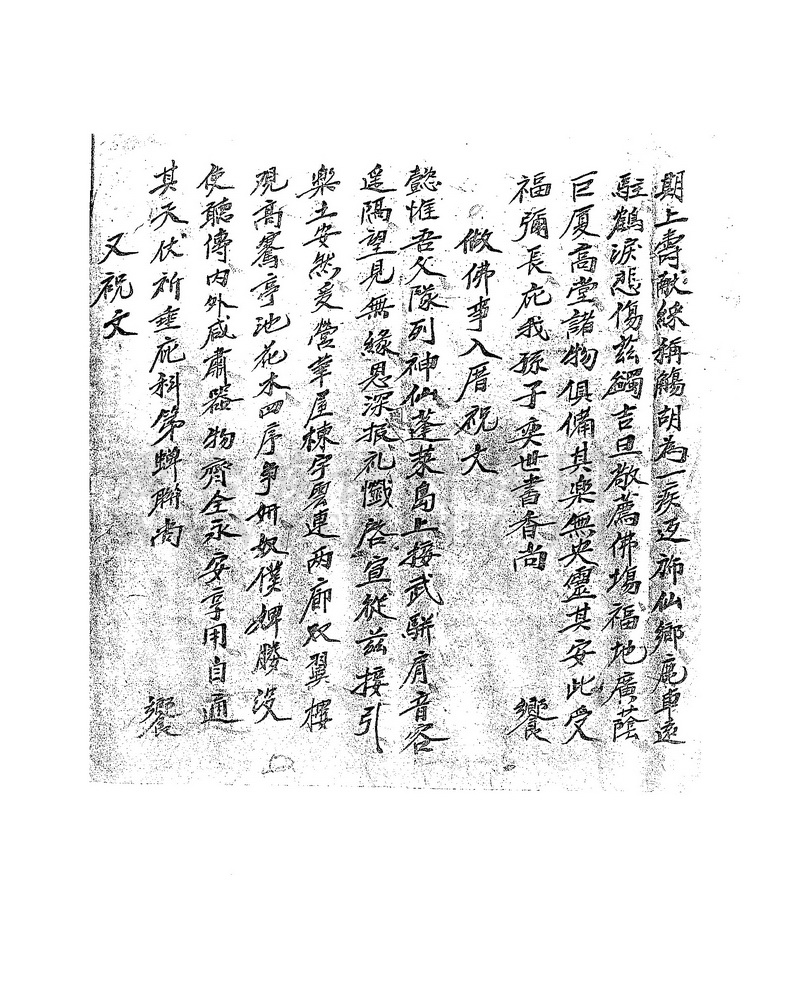 期上壽獻綵稱觴胡為一疾迈歸仙鄉鹿車遠
駐鶴淚悲傷兹蠲吉旦敬薦佛塲福地廣蔭
巨厦高堂諸物俱備其樂無央靈其安此受
福彌長庇我孫子奕世書香尚 饗
做佛事入厝祝文
懿惟吾父隊列神仙蓬萊島上接武駢肩音容
遥隔望見無緣恩深報礼懺啓宣從兹接引
樂土安然爰營華屋棟宇雲連两廊双翼樓
观高騫亭池花木四序争妍奴僕婢媵没
使聽傳内外咸肅器物齊全永安享用自適
其天伏祈垂庇科第蝉聯尚 饗
又祝文